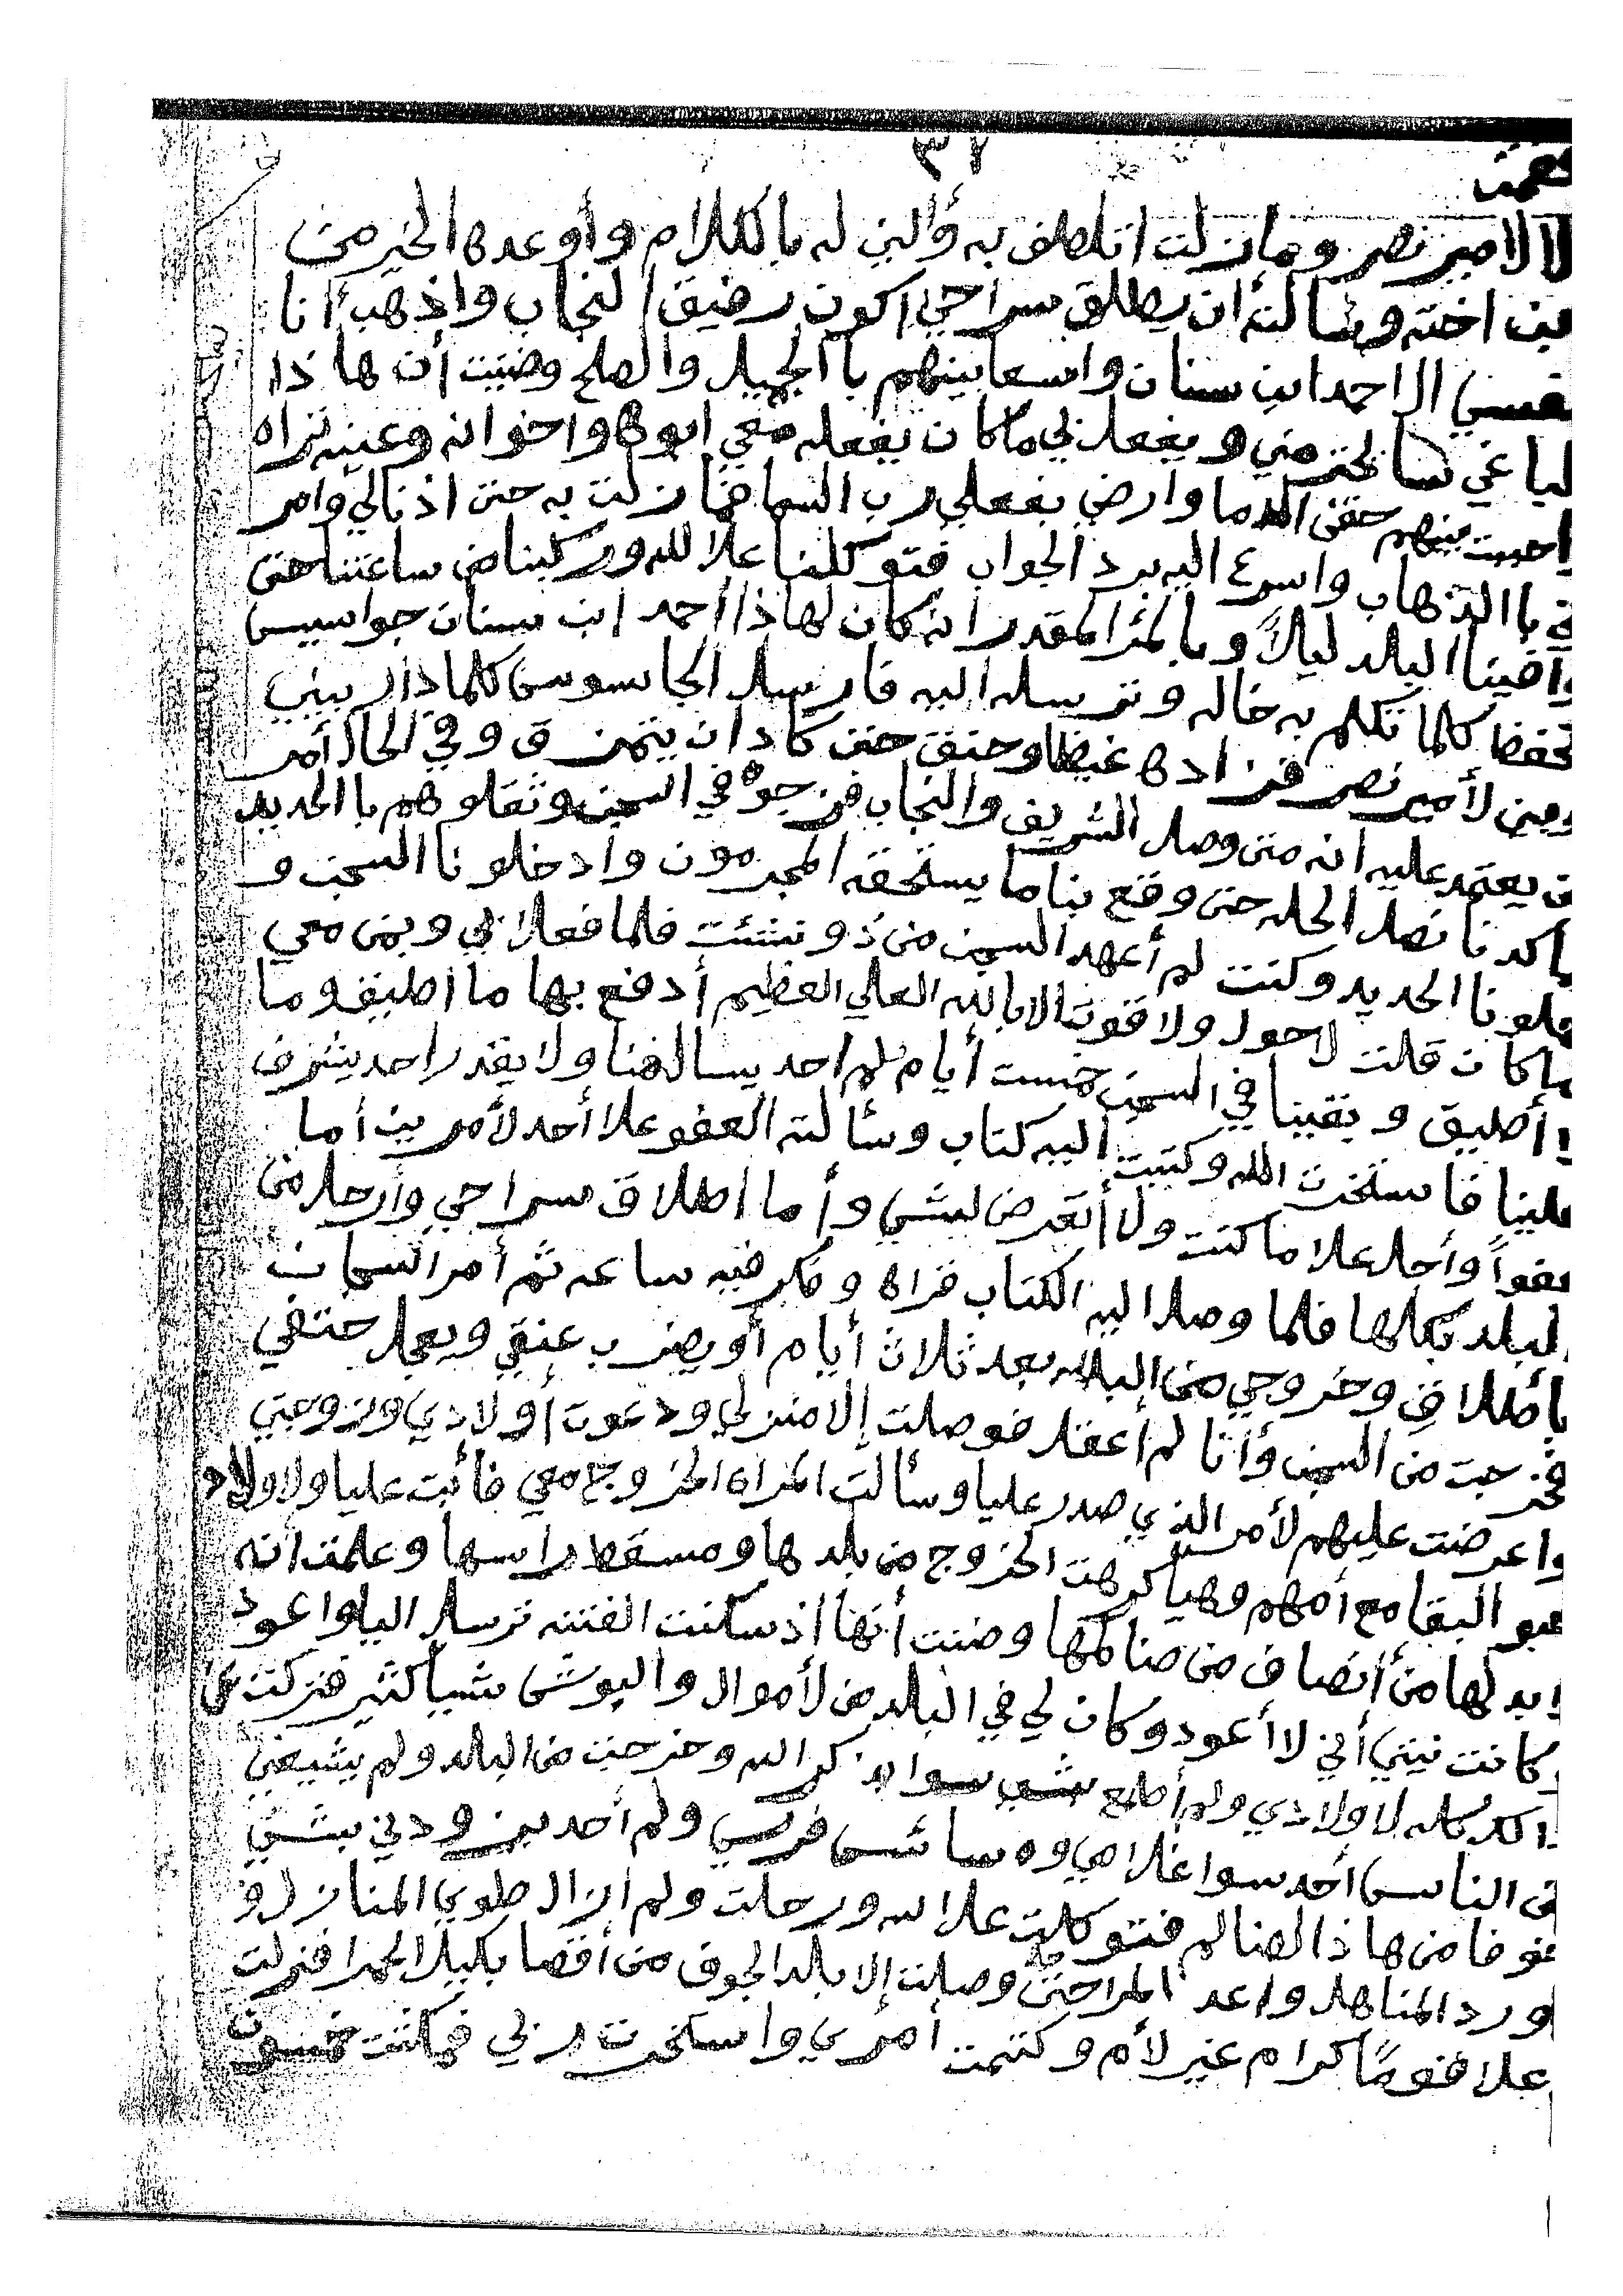 ٣٦
لا لامير نصر ومازلت اتلطف به وألين له بالكلام وأوعدها الخير من
بن اخته وسالته أن يطلق سراحي اكون رفيق النجاب واذهب أنا
بنفسي الا احمد ابن سنان واسعا بينهم با الجميل والصلح وضنيت أن هاذا
لباغي سا يحترمني ويفعل بي ماكان يفعله معي ابوها واخوانه وعينه تراه
احببت بينهم حقن الدما وارضي بفعلي رب السما فما زلت به حتى اذنالي وامر
ني با الذهاب واسرع اليه برد الجواب فتوكلنا علا لله وركبنا من ساعتنا حتى
وافينا البلد ليلاً وبا لمر المقدر انه كان لهاذا أحمد ابن سنان جواسيس
تحفضا كالما تكلم به خاله وترسله اليه فارسل الجاسوس كلما دار بيني
وبين لأمير نصر فزادها غيظا وحنق حتى كاد ان يتمزق وفي الحال أمر
من يعتمد عليه انه متى وصل الشريف والنجاب فزجوه في السجن وثقلوهم با الحديد
ماكدنا نصل الحله حتى وقع بنا ما يستحقه المجرمون وادخلونا السجن و
الحديد وكنت لم أعهد السجن منذو نشئت فلما فعلا بي وبمن معي
ماكان قلت لاحول ولاقوت الا بالله العلي العظيم أدفع بها ما اطيق وما
لا أطيق وبقينا في السجن خمست أيام لم احد يسال عنا ولا يقدر احد يشرف
علينا فاستخرت الله وكتبت اليه كتاب وسألته العفو علا أحد لأمرين أما
عفواً وأحل علا ماكنت ولا أتعرض لبشي وأما اطلاق سراحي وأرحل من
لبلد بكلها فلما وصل اليه الكتاب قراه وفكر فيه ساعه ثم أمر السجان
بأطلاقي وخروجي من البلد بعد ثلاث أيام أو يضرب عنقي ويعجل حتفي
فخرجت من السجن وأنا لم اعقل فوصلت إلا منزلي ودعوت أولادي وزوجتي
واعرضت عليهم لأمر الذي صدر عليا وسألت المراه الخروج معي فأبت عليا ولاولاد
البقا مع أمهم وهيا كرهت الخروج من بلدها ومسقط راسها وعلمت انه
لابد لها من أنصاف من ضالمها وضنت أنها اذ سكنت الفتنه ترسل اليا واعود
وكانت نيتي أني لا أعود وكان لي في البلد من لأموال واليوش شيأ كثير فتركت
ذالك كله لاولادي ولم أطمع بشي سوا بذكر الله وخرجت من البلد ولم يشيعني
من الناس أحد سوا غلامي وه سائس فرسي ولم أحد يزودني بشئ
خوفا من هاذ الضالم فتوكلت علا الله ورحلت ولم ازال طوي المنازل و
اورد المناهل واعد المراحل حتى وصلت إلا بلد الجوف من أقصا بكيل الحمرا فنزلت
علا قومًا كرام غير لأم وكتمت أمري واستخرت ربي فمكثت خمسون